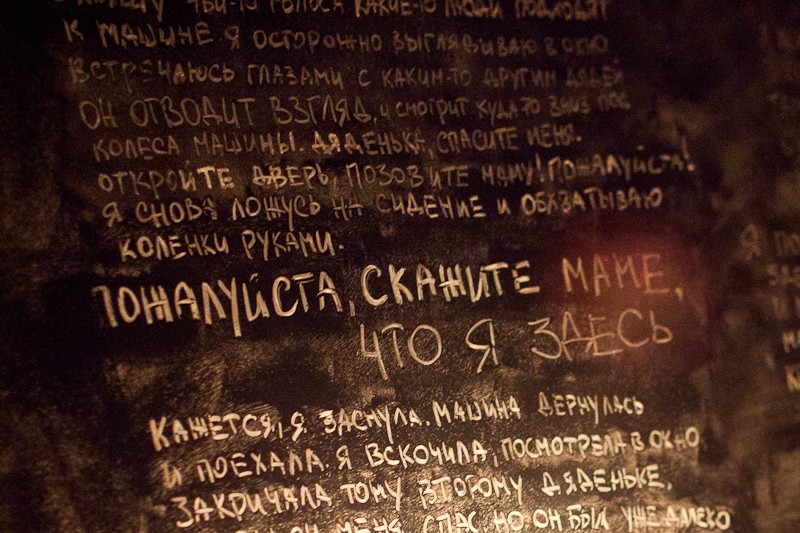 чьи-то голоса какие-то люди подходят
к машине. Я осторожно выглядываю в окно
встречаюсь глазами с каким-то другим дядей
он отводит взгляд, и смотрит куда-то вниз под
колеса машины. Дяденька, спасите меня.
откройте дверь, позовите маму! Пожалуйста!
Я снова ложусь на сидение и обхватываю
коленки руками.
Пожалуйста, скажите маме,
что я здесь
Кажется, я заснула. Машина дернулась
и поехала. Я вскочила, посмотрела в окно
закричала тому второму дяденьке,
он меня спас, но он был уже далеко
Я